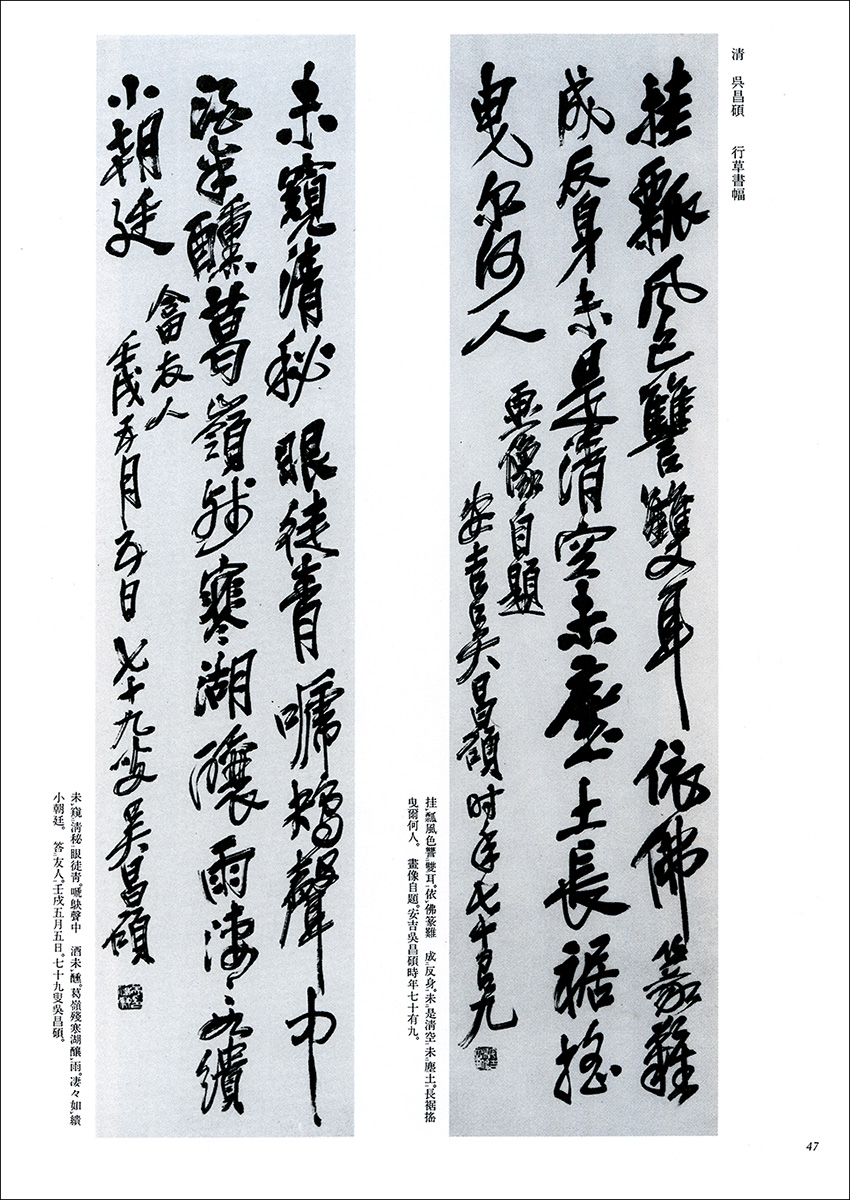 清　吳昌碩　行草書幅
挂瓢風色讐雙耳依佛篆難
成反身未是清空未塵土長裾搖
曳尔何人
画像自題
安吉吳昌碩时年七十有九
挂瓢風色讐雙耳。依佛篆難　成反身。未是淸空未塵土。長裾搖
曳爾何人。　畫像自題。安吉吳昌碩時年七十有九。
未窺清秘眼徒青嗁鴂聲中
酒半醺葛嶺残寒湖釀雨凄〻如繢
小朝廷
畣友人
壬戌五月五日七十九叟吳昌碩
未窺淸秘眼徒靑。嗁鴃聲中　酒未醺。葛嶺殘寒湖釀雨。凄々如繢
小朝廷。　答友人。壬戌五月五日。七十九叟吳昌碩。
47